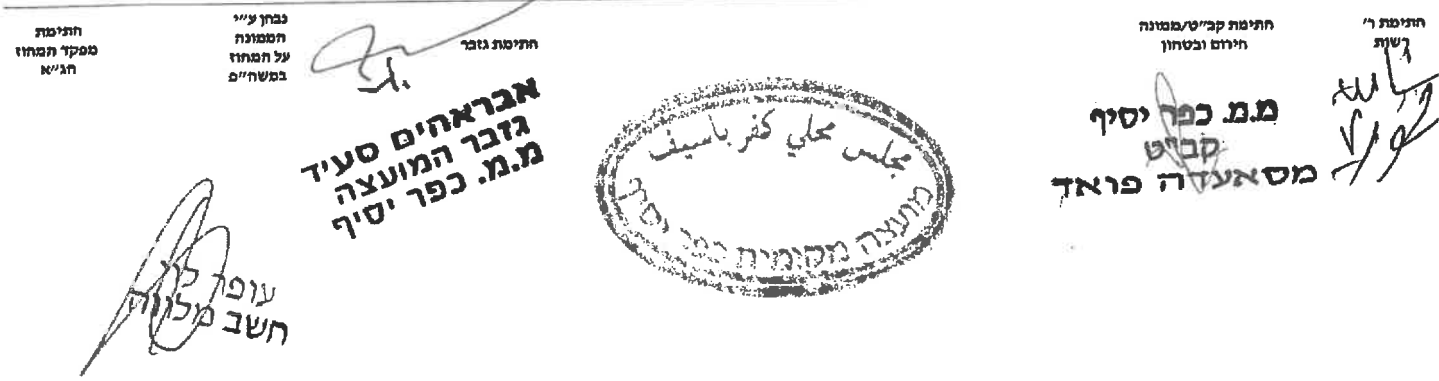 חתימת ר'
רשות
חתימת קב״ט/ממונה
חירום ובטחון
מ.מ. כפר יסיף
קב״ט
מסאעדה פואד
مجلس محلي كفر ياسيف
מועצה מקומית כפר יסיף
חתימת גזבר
אבראהים סעיד
גזבר המועצה
מ.מ. כפר יסיף
נבחן ע״י
הממונה
על המחוז
במשח״פ
חתימת
מפקד המחוז
הג״א
עופר לוי
חשב מלווה